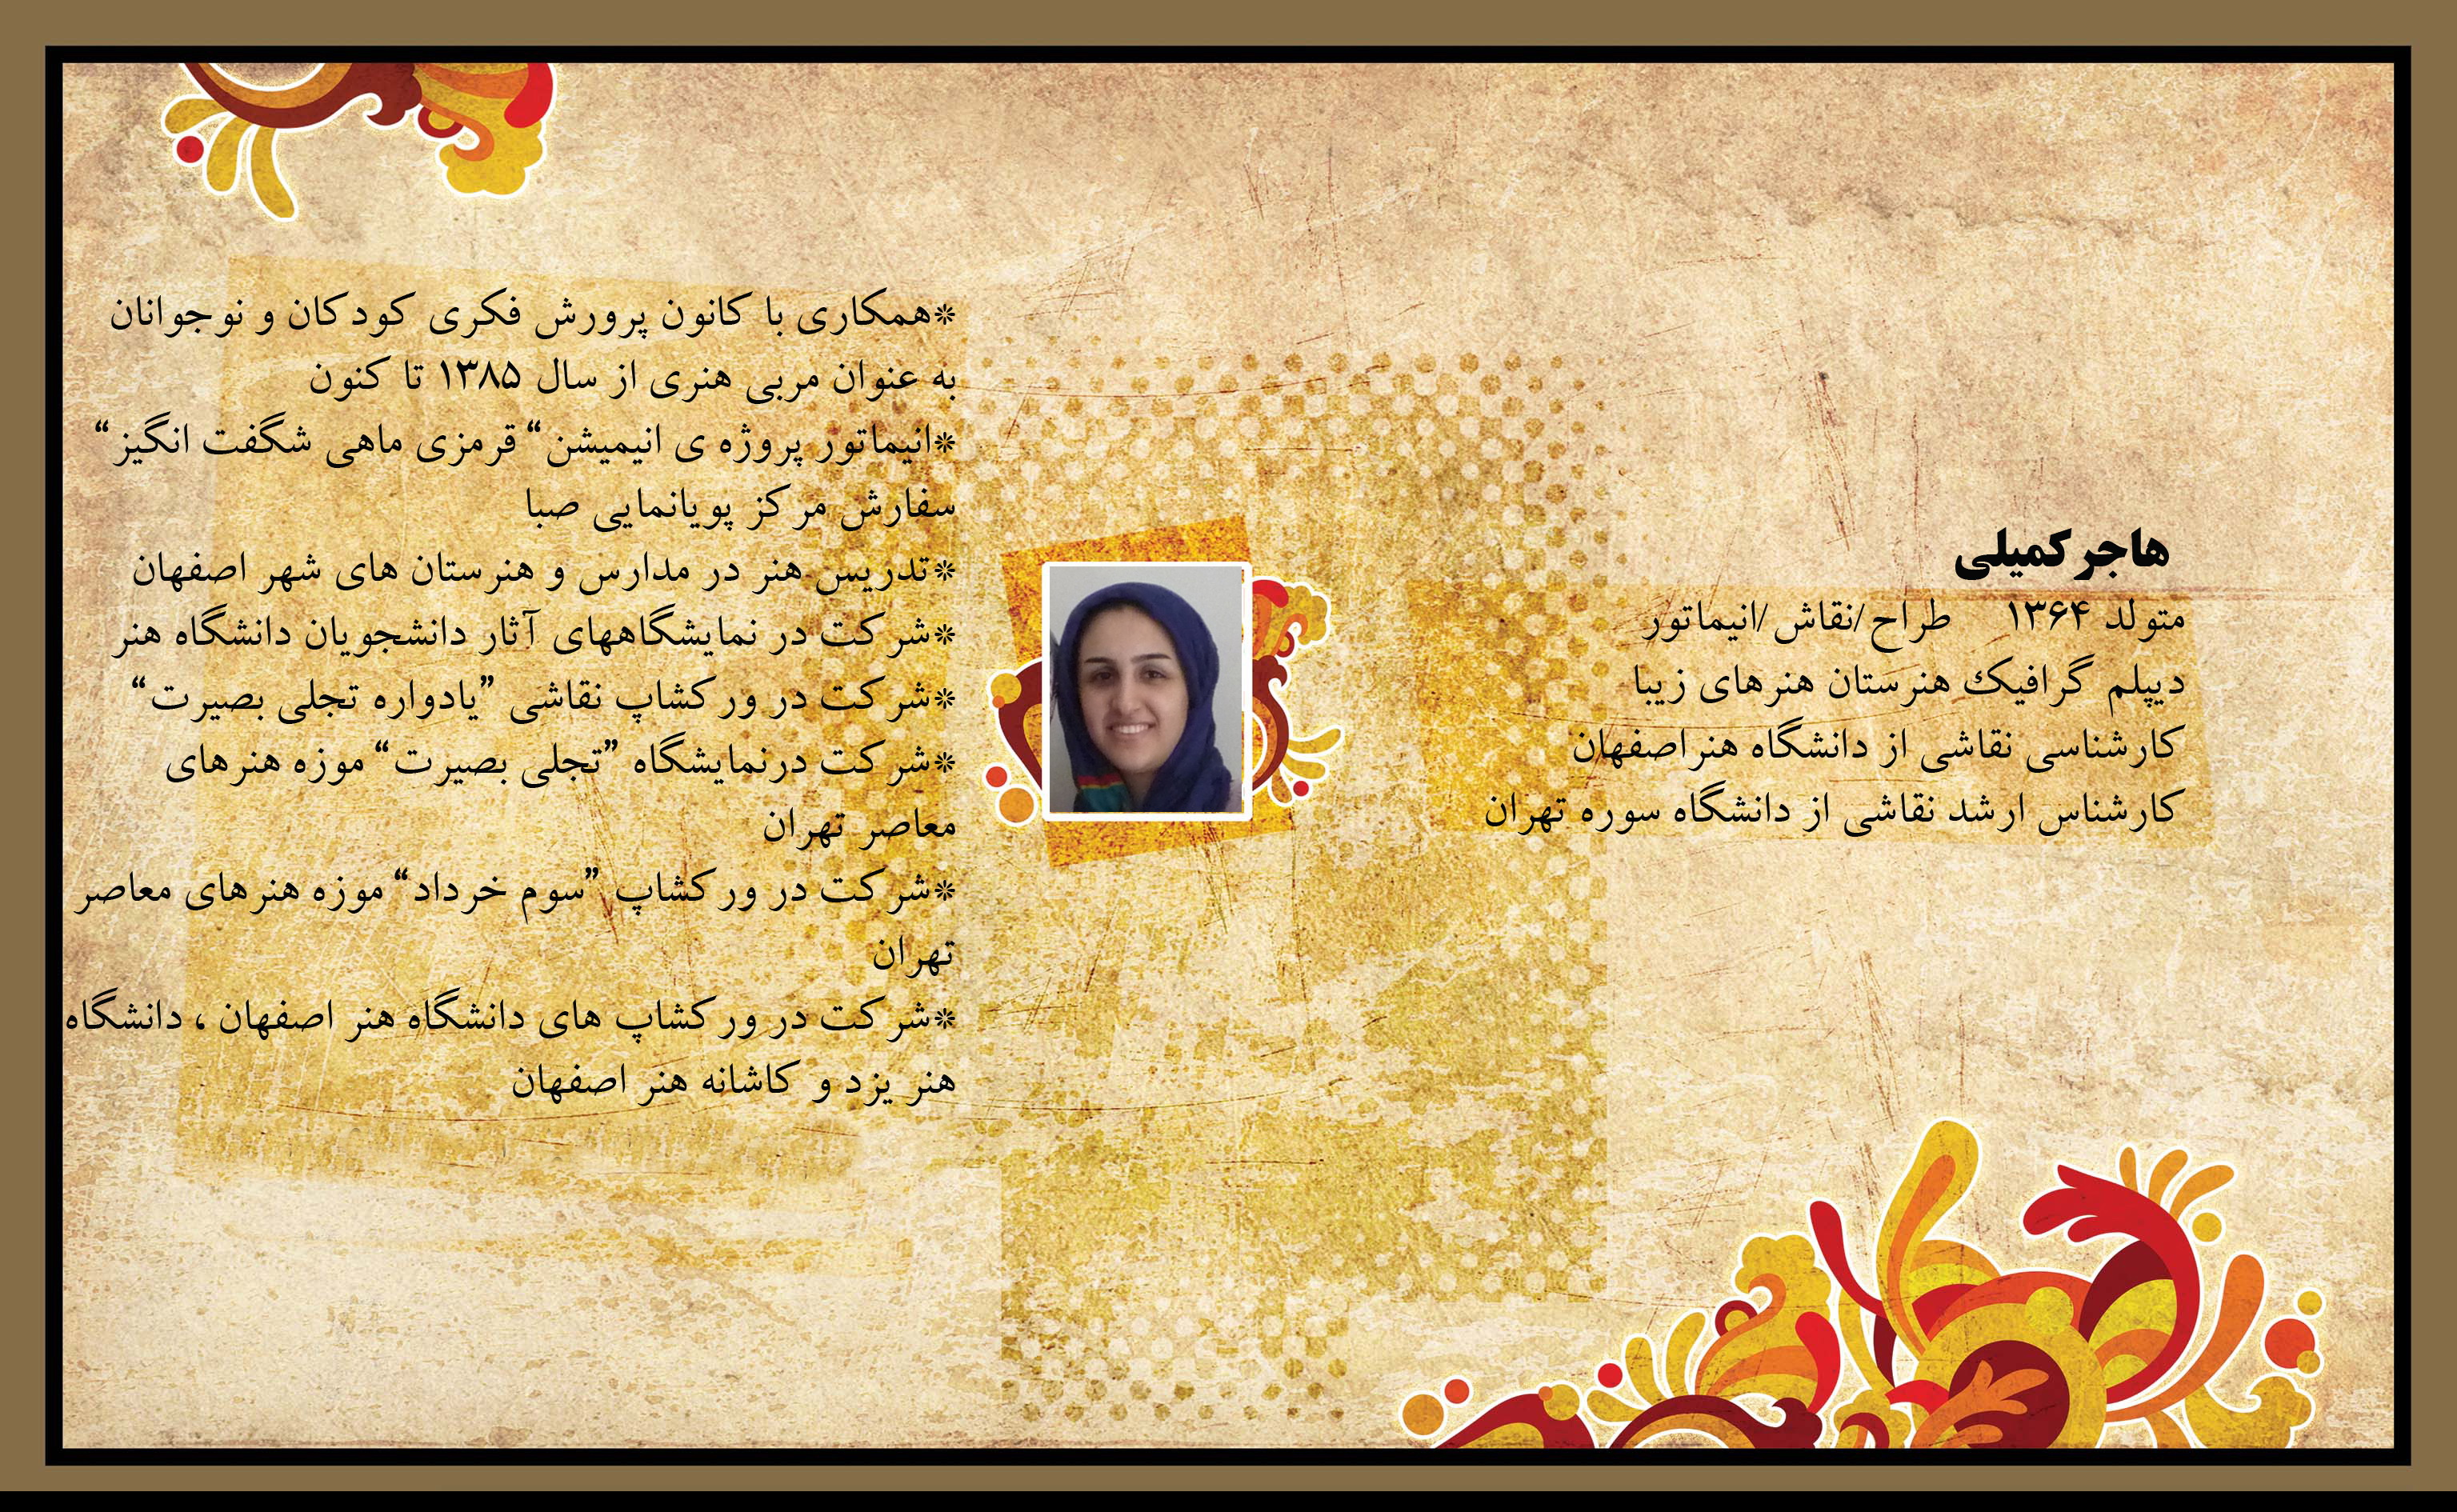 هاجر کمیلی
متولد ۱۳۶۴ طراح/نقاش/انیماتور
دیپلم گرافیک هنرستان هنرهای زیبا
کارشناسی نقاشی از دانشگاه هنراصفهان
کارشناس ارشد نقاشی از دانشگاه سوره تهران
*همکاری با کانون پرورش فکری کودکان و نوجوانان
به عنوان مربی هنری از سال ۱۳۸۵ تا کنون
*انیماتور پروژه ی انیمیشن “قرمزی ماهی شگفت انگیز“
سفارش مرکز پویانمایی صبا
*تدریس هنر در مدارس و هنرستان های شهر اصفهان
*شرکت در نمایشگاههای آثار دانشجویان دانشگاه هنر
*شرکت در ورکشاپ نقاشی ”یادواره تجلی بصیرت“
*شرکت درنمایشگاه ”تجلی بصیرت“ موزه هنرهای
معاصر تهران
*شرکت در ورکشاپ ”سوم خرداد“ موزه هنرهای معاصر
تهران
*شرکت در ورکشاپ های دانشگاه هنر اصفهان ، دانشگاه
هنر یزد و کاشانه هنر اصفهان